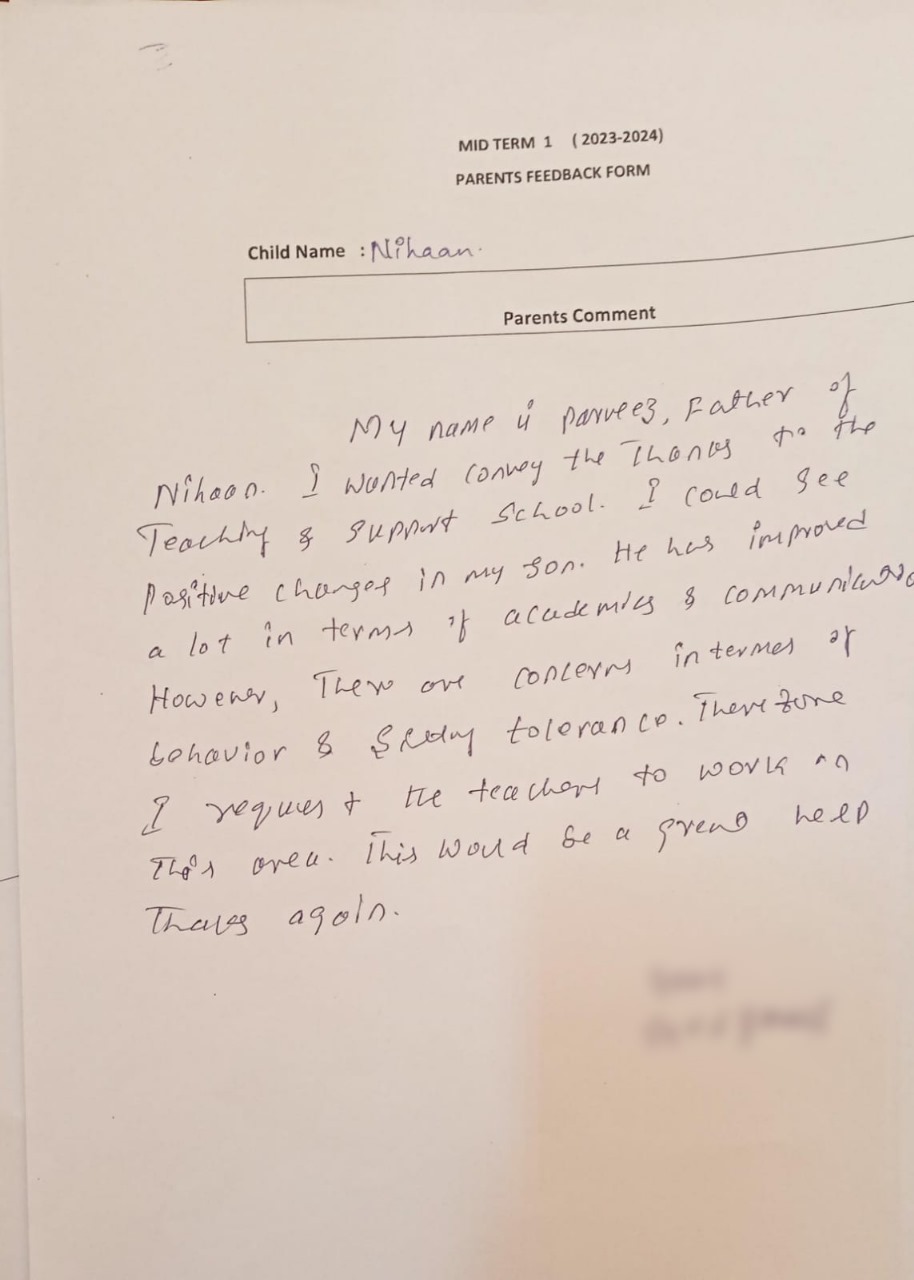 MID TERM 1 ( 2023-2024)
PARENTS FEEDBACK FORM
Child Name : Nihaan.
Parents Comment
My name is parveez, Father of
Nihaan. I wanted convey the Thanks to the
Teaching & support School. I could see
positive changes in my son. He has improved
a lot in terms of academics &
However, There are concerns interms of
behavior & tolerance. Therefore
I request the teachers to work on
This area. This would be a great help
Thanks again.